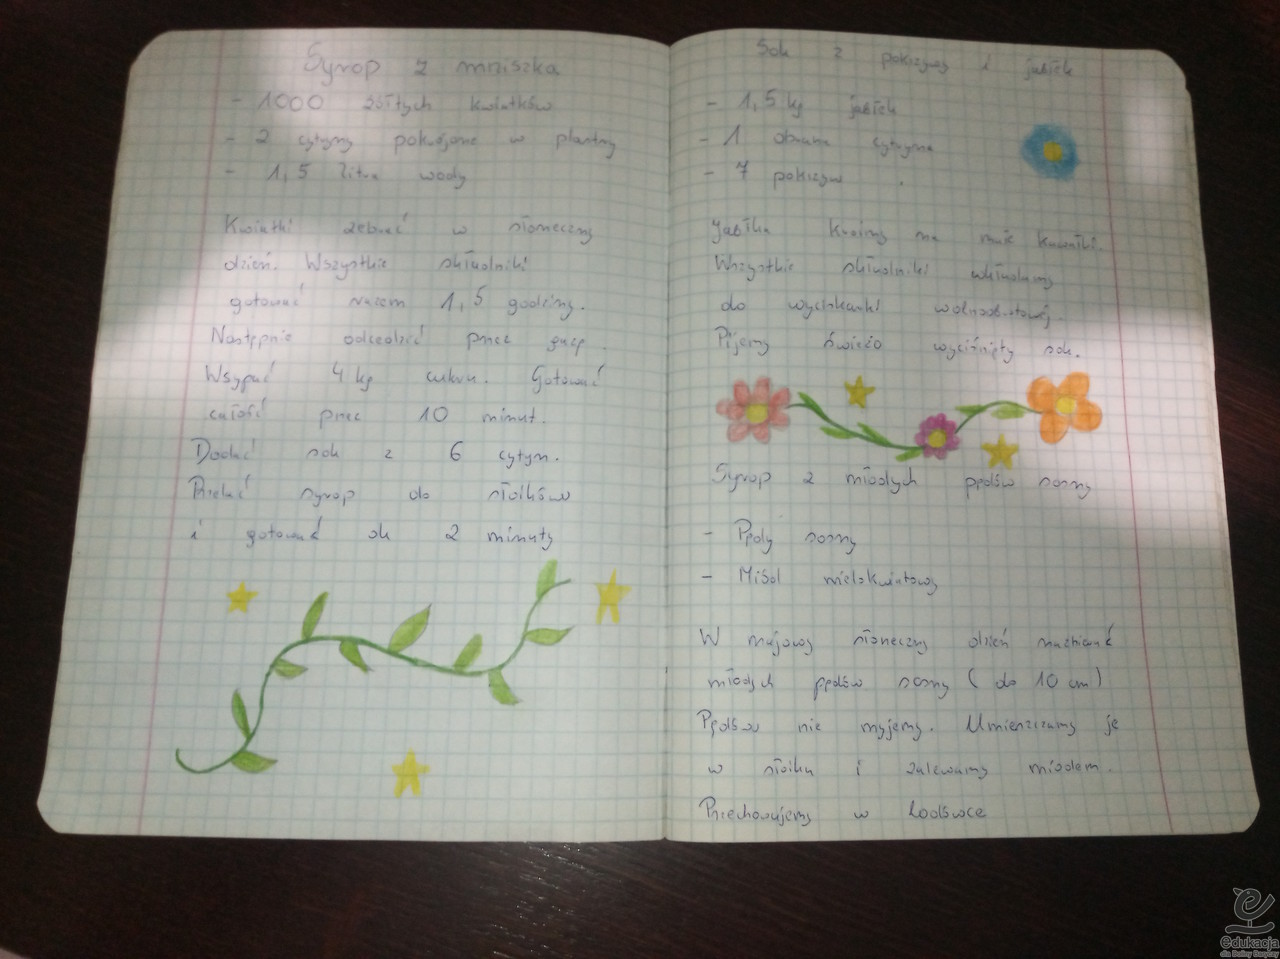 Syrop z mniszka
- 1000 żółtych kwiatków
- 2 cytryny pokrojone w plastry
- 1,5 litra wody
Kwiatki zebrać w słoneczny
dzień. Wszystkie składniki
gotować razem 1,5 godziny.
Następnie odcedzić przez gazę.
Wsypać 4 kg cukru. Gotować
całość przez 10 minut.
Dodać sok z 6 cytryn.
Przelać syrop do słoików
i gotować ok 2 minuty
Sok z pokrzywy i jabłek
- 1,5 kg jabłek
- 1 obrana cytryna
- 7 pokrzyw
Jabłka kroimy na małe kawałki.
Wszystkie składniki wkładamy
do wyciskarki wolnoobrotowej.
Pijemy świeżo wyciśnięty sok.
Syrop z młodych pędów sosny
- Pędy sosny
- Miód wielokwiatowy
W majowy słoneczny dzień nazbierać
młodych pędów sosny (do 10 cm)
Pędów nie myjemy. Umieszczamy je
w słoiku i zalewamy miodem.
Przechowujemy w lodówce
edukacja
dla Doliny Baryczy